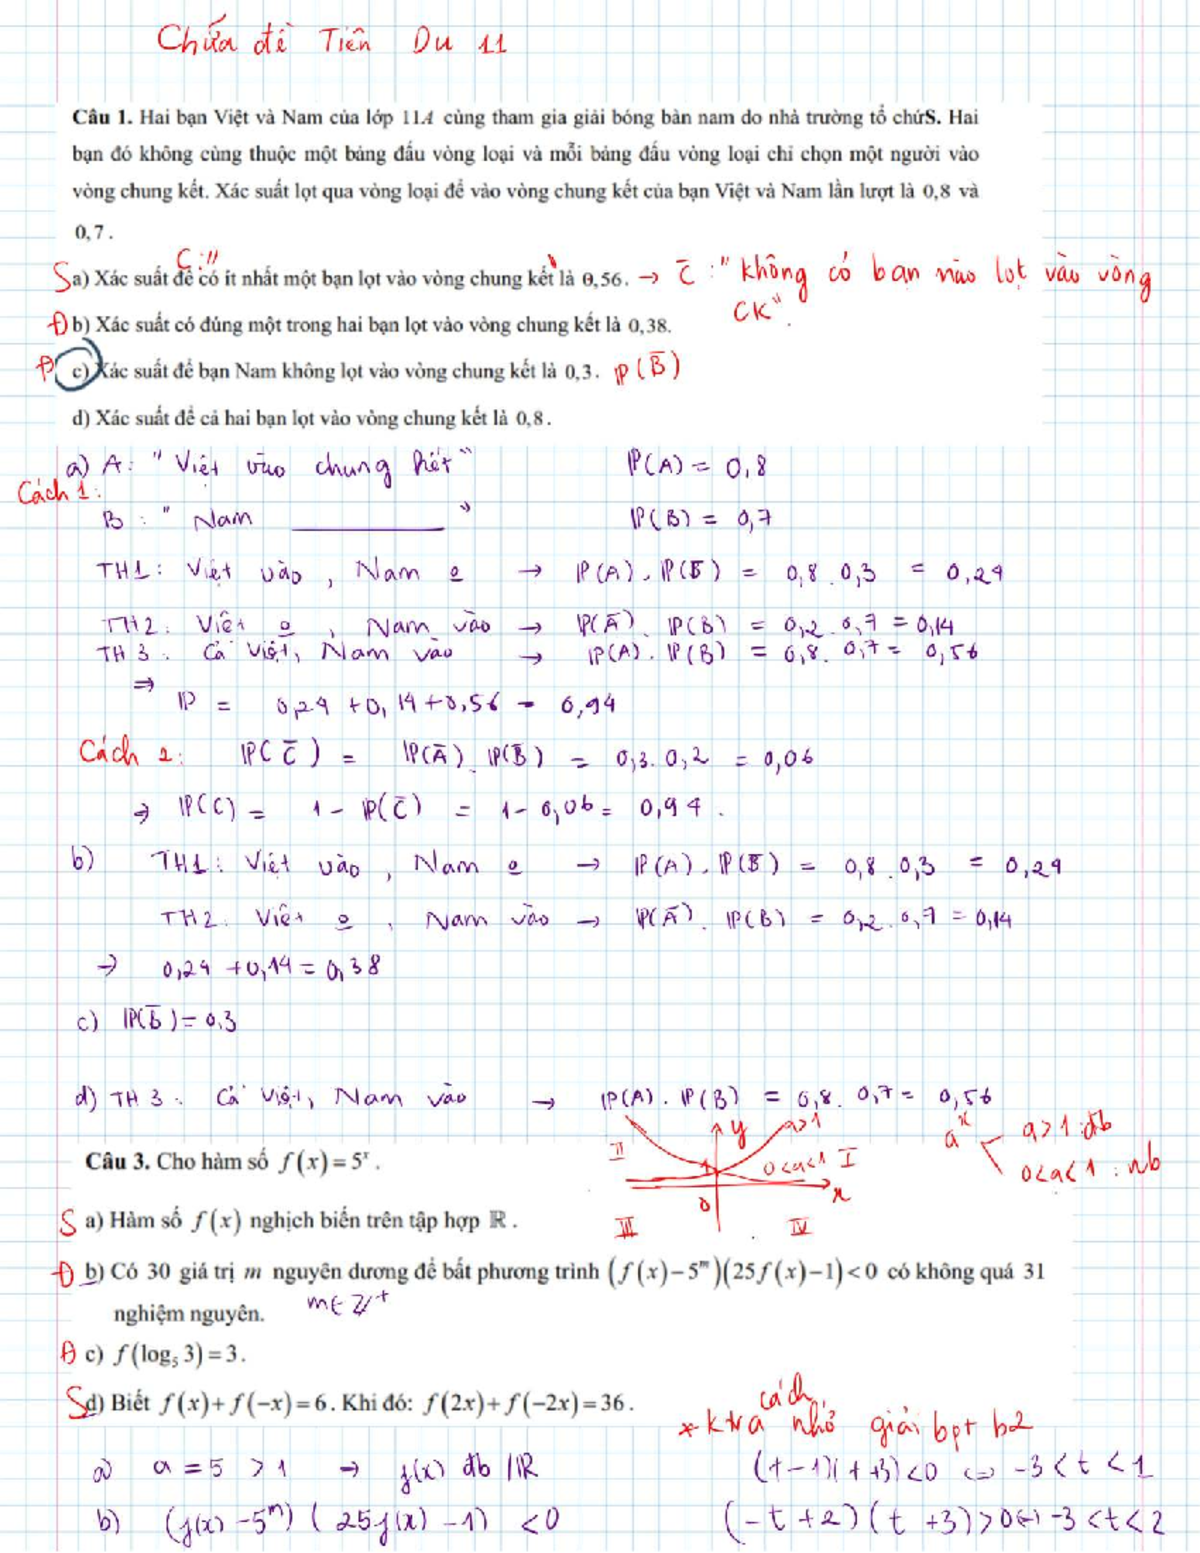 Chữa đề Tiên Du 11
Câu 1. Hai bạn Việt và Nam của lớp 11A cùng tham gia giải bóng bàn nam do nhà trường tổ chứS. Hai
bạn đó không cùng thuộc một bảng đấu vòng loại và mỗi bảng đấu vòng loại chỉ chọn một người vào
vòng chung kết. Xác suất lọt qua vòng loại để vào vòng chung kết của bạn Việt và Nam lần lượt là 0,8 và
0,7.
C:"
S a) Xác suất để có ít nhất một bạn lọt vào vòng chung kết là 0,56. → C̅ : " không có bạn nào lọt vào vòng
CK".
Đ b) Xác suất có đúng một trong hai bạn lọt vào vòng chung kết là 0,38.
Đ c) Xác suất để bạn Nam không lọt vào vòng chung kết là 0,3. P(B̅)
d) Xác suất để cả hai bạn lọt vào vòng chung kết là 0,8.
a) A: " Việt vào chung kết" P(A) = 0,8
Cách 1:
B : " Nam ________ " P(B) = 0,7
TH1: Việt vào, Nam o → P(A). P(B̅) = 0,8 . 0,3 = 0,24
TH2: Việt o, Nam vào → P(A̅). P(B) = 0,2 . 0,7 = 0,14
TH 3: Cả Việt, Nam vào → P(A). P(B) = 0,8. 0,7 = 0,56
⇒
P = 0,24 + 0,14 + 0,56 = 0,94
Cách 2: P(C̅) = P(A̅). P(B̅) = 0,3. 0,2 = 0,06
⇒ P(C) = 1 - P(C̅) = 1 - 0,06 = 0,94.
b) TH1: Việt vào, Nam o → P(A). P(B̅) = 0,8 . 0,3 = 0,24
TH2: Việt o, Nam vào → P(A̅). P(B) = 0,2 . 0,7 = 0,14
→ 0,24 + 0,14 = 0,38
c) P(B̅) = 0,3
d) TH 3: Cả Việt, Nam vào → P(A). P(B) = 0,8. 0,7 = 0,56
II y a>1 1 0<a<1 I x 0 III IV
aˣ a>1: đb
0<a<1: nb
Câu 3. Cho hàm số f(x) = 5ˣ.
S a) Hàm số f(x) nghịch biến trên tập hợp ℝ.
Đ b) Có 30 giá trị m nguyên dương để bất phương trình (f(x)−5ᵐ)(25f(x)−1)<0 có không quá 31
nghiệm nguyên. m∈ℤ⁺
Đ c) f(log₅3)=3.
S d) Biết f(x)+f(−x)=6. Khi đó: f(2x)+f(−2x)=36.
cách
* ktra nhỏ giải bpt b2
a) a = 5 > 1 → f(x) đb /ℝ (t−1)(t+3)<0 ⇔ −3<t<1
b) (f(x) −5ᵐ)(25f(x) −1) <0 (−t+2)(t+3)>0⇔−3<t<2